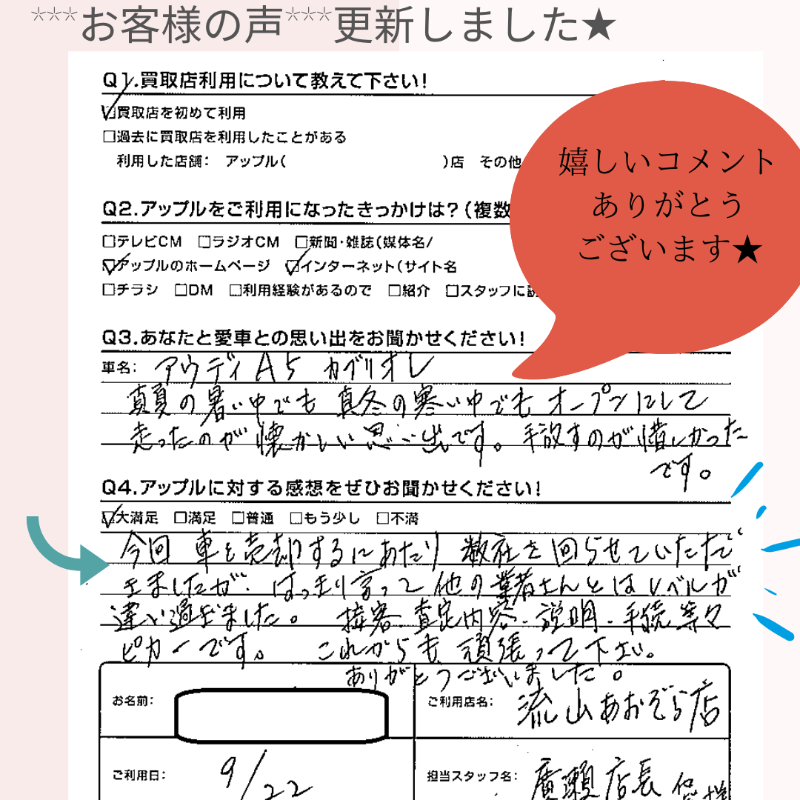 ***お客様の声***更新しました★
Q1.買取店利用について教えて下さい！
☑買取店を初めて利用
□過去に買取店を利用したことがある
利用した店舗： アップル( )店 その他
嬉しいコメント
ありがとう
ございます★
Q2.アップルをご利用になったきっかけは？(複数
□テレビCM □ラジオCM □新聞・雑誌(媒体名/
☑アップルのホームページ ☑インターネット(サイト名
□チラシ □DM □利用経験があるので □紹介 □スタッフに
Q3.あなたと愛車との思い出をお聞かせください！
車名： アウディ A5 カブリオレ
真夏の暑い中でも 真冬の寒い中でも オープンにして
走ったのが懐かしい思い出です。手放すのが惜しかった
です。
Q4.アップルに対する感想をぜひお聞かせください！
☑大満足 □満足 □普通 □もう少し □不満
今回 車を売却するにあたり 数社を回らせていただ
きましたが、はっきり言って他の業者さんとはレベルが
違い過ぎました。 接客・査定内容・説明・手続等々
ピカ一です。 これからも頑張って下さい。
ありがとうございました。
お名前：
ご利用店名： 流山あおぞら店
ご利用日： 9/22
担当スタッフ名： 廣瀬店長